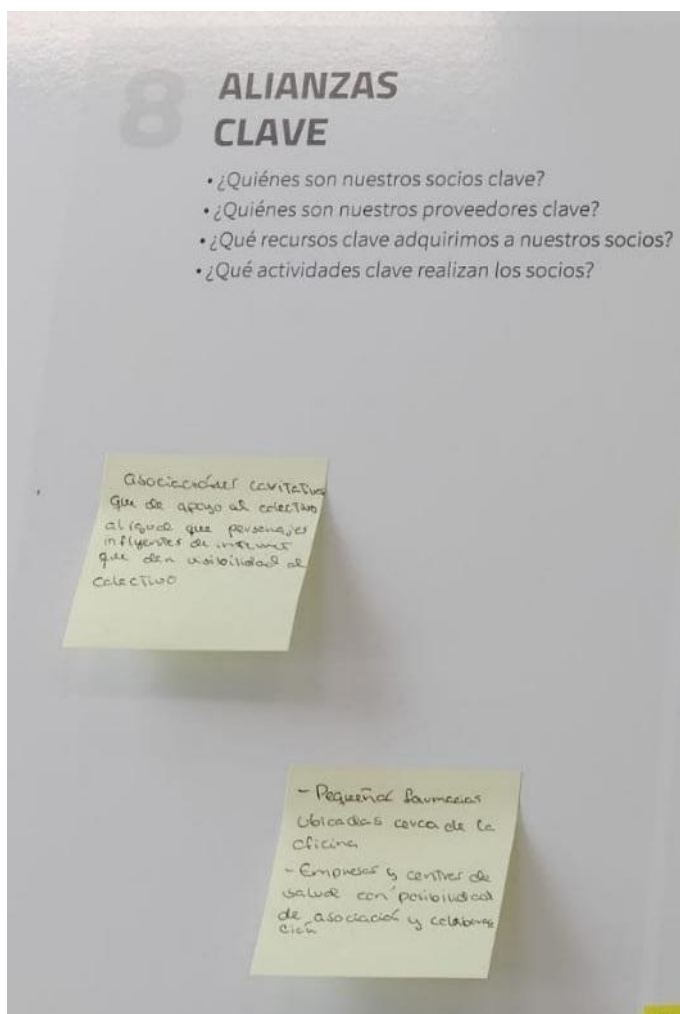 8
ALIANZAS
CLAVE
• ¿Quiénes son nuestros socios clave?
• ¿Quiénes son nuestros proveedores clave?
• ¿Qué recursos clave adquirimos a nuestros socios?
• ¿Qué actividades clave realizan los socios?
asociaciones caritativas
que de apoyo al colectivo
al igual que personajes
influyentes de internet
que den visibilidad al
colectivo
- Pequeñas farmacias
ubicadas cerca de la
oficina
- Empresas y centros de
salud con posibilidad
de asociación y colabora
ción